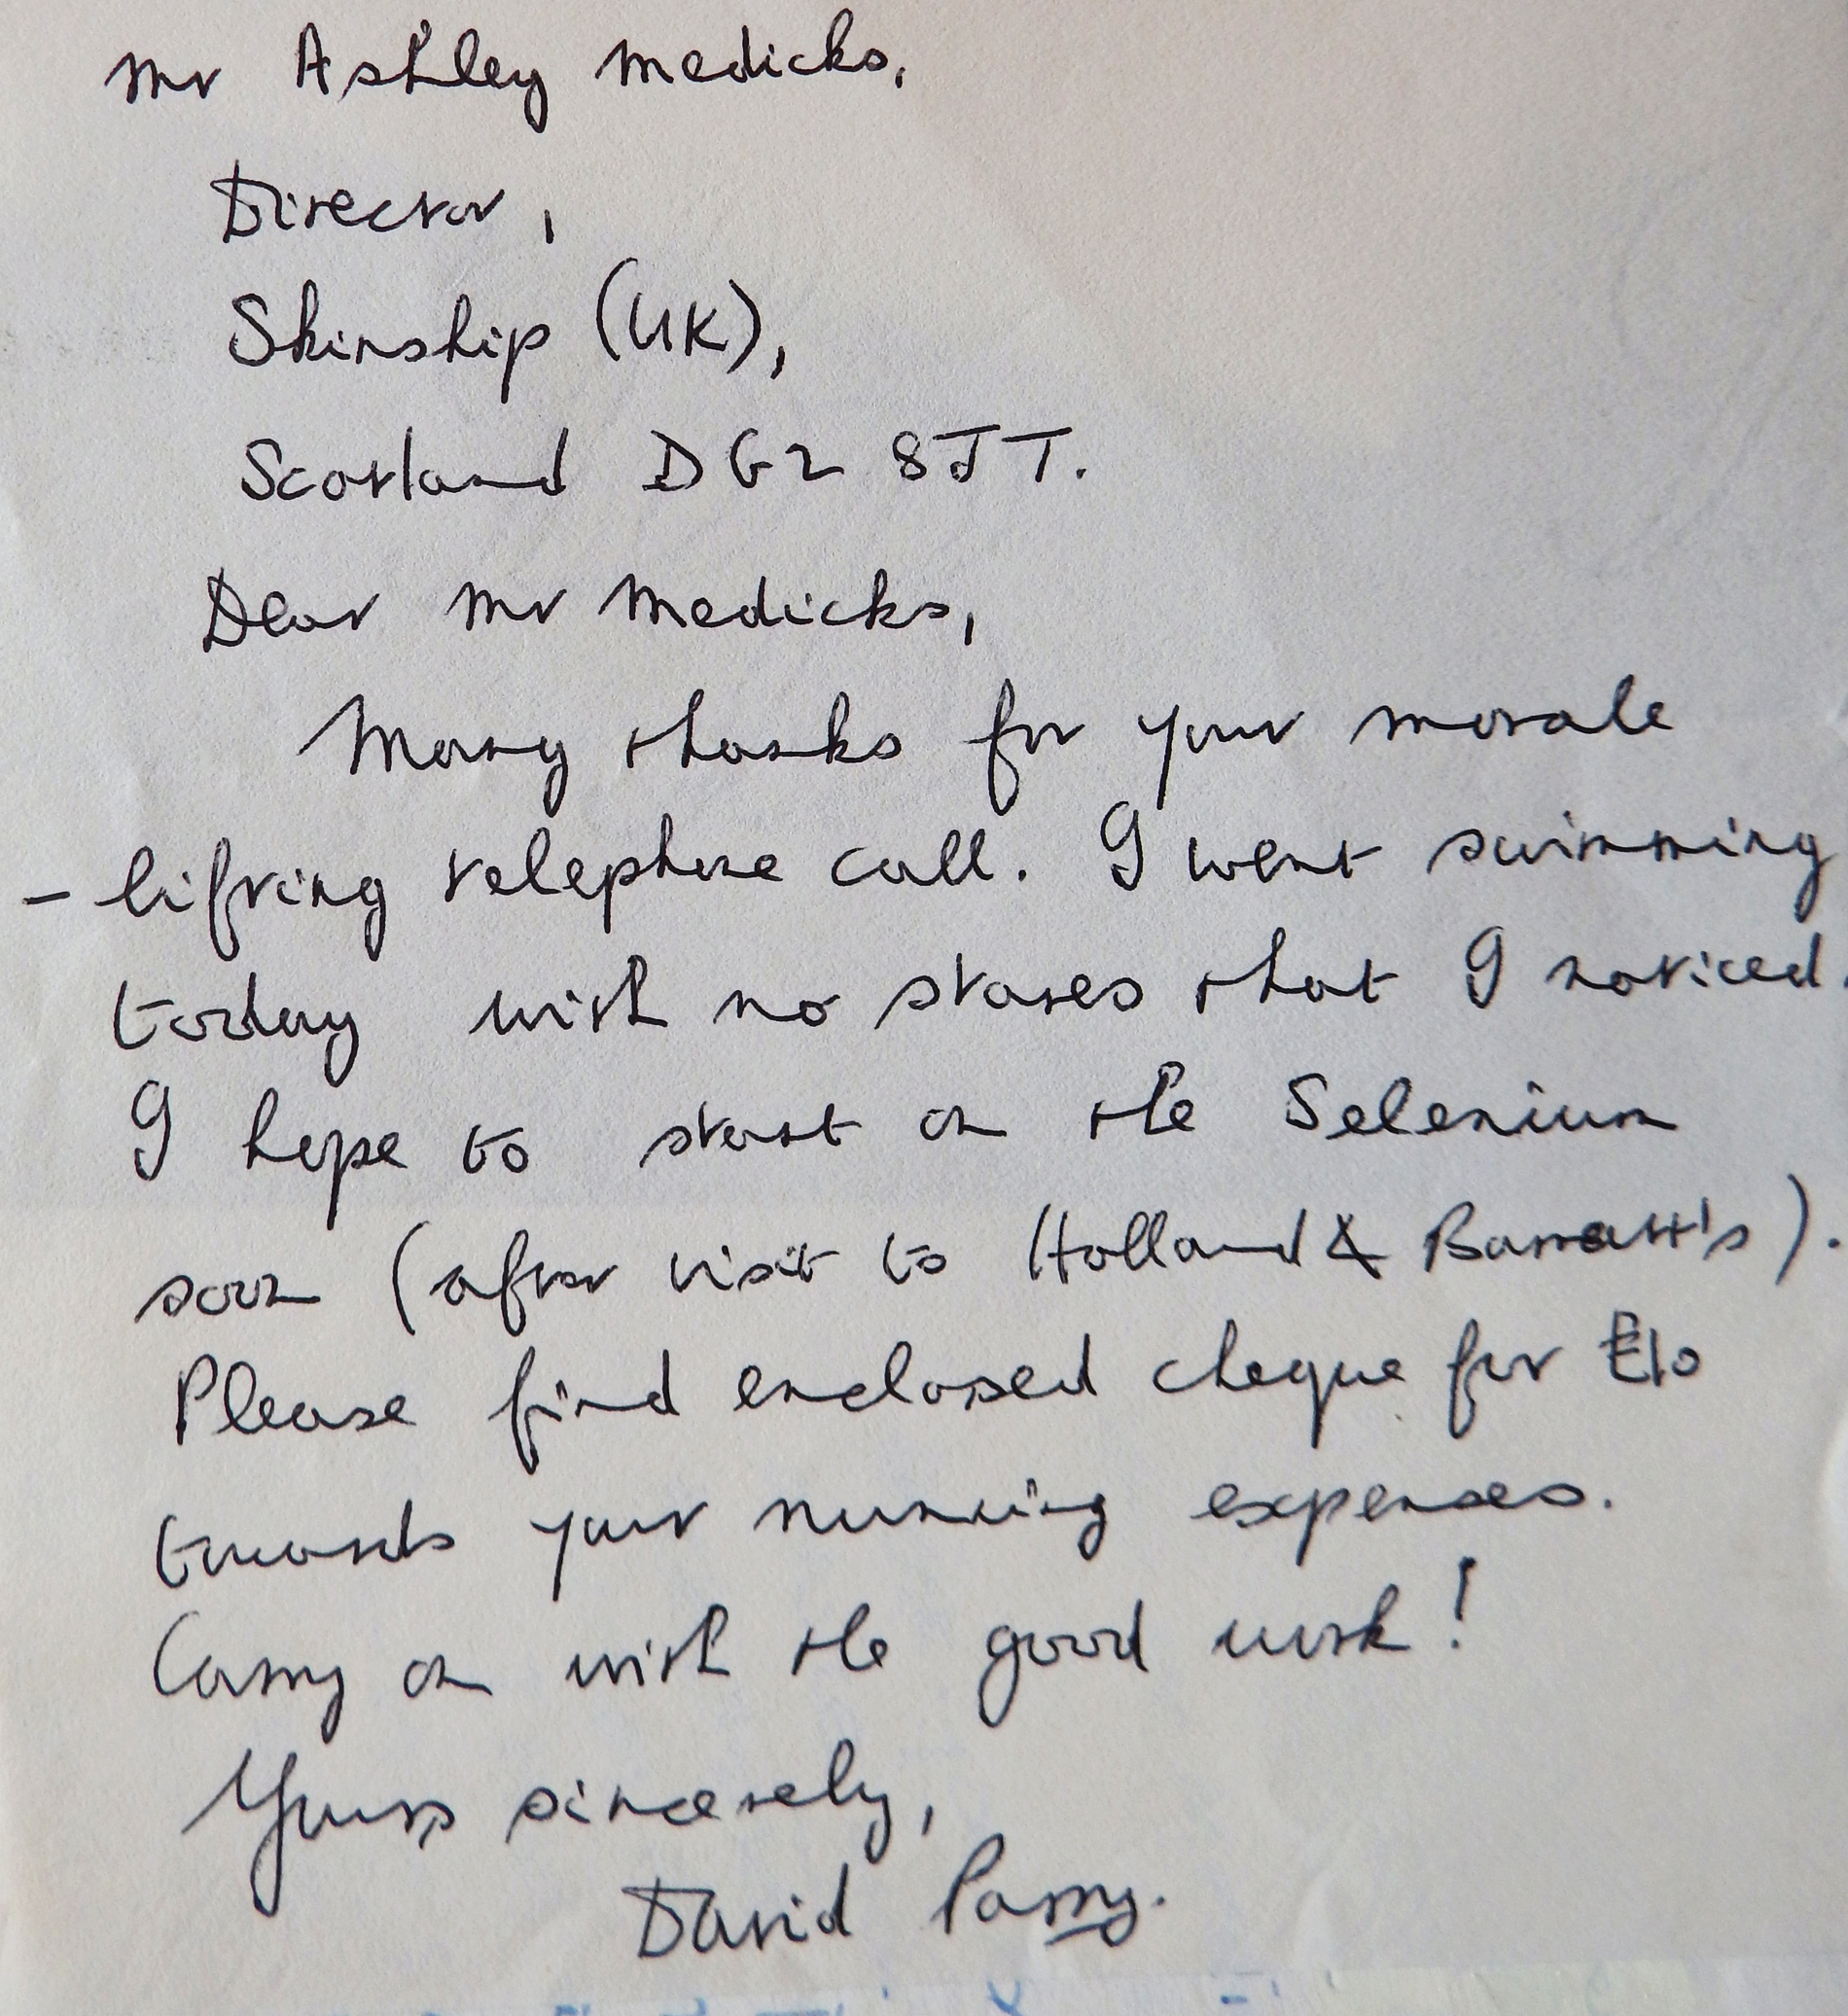 Mr Ashley Medicks,
Director,
Skinship (UK),
Scotland DG2 8JT.
Dear Mr Medicks,
Many thanks for your morale
- lifting telephone call. I went swimming
today with no stares that I noticed.
I hope to start on the Selenium
soon (after visit to Holland & Barratt's).
Please find enclosed cheque for £10
towards your running expenses.
Carry on with the good work!
Yours sincerely,
David Parry.